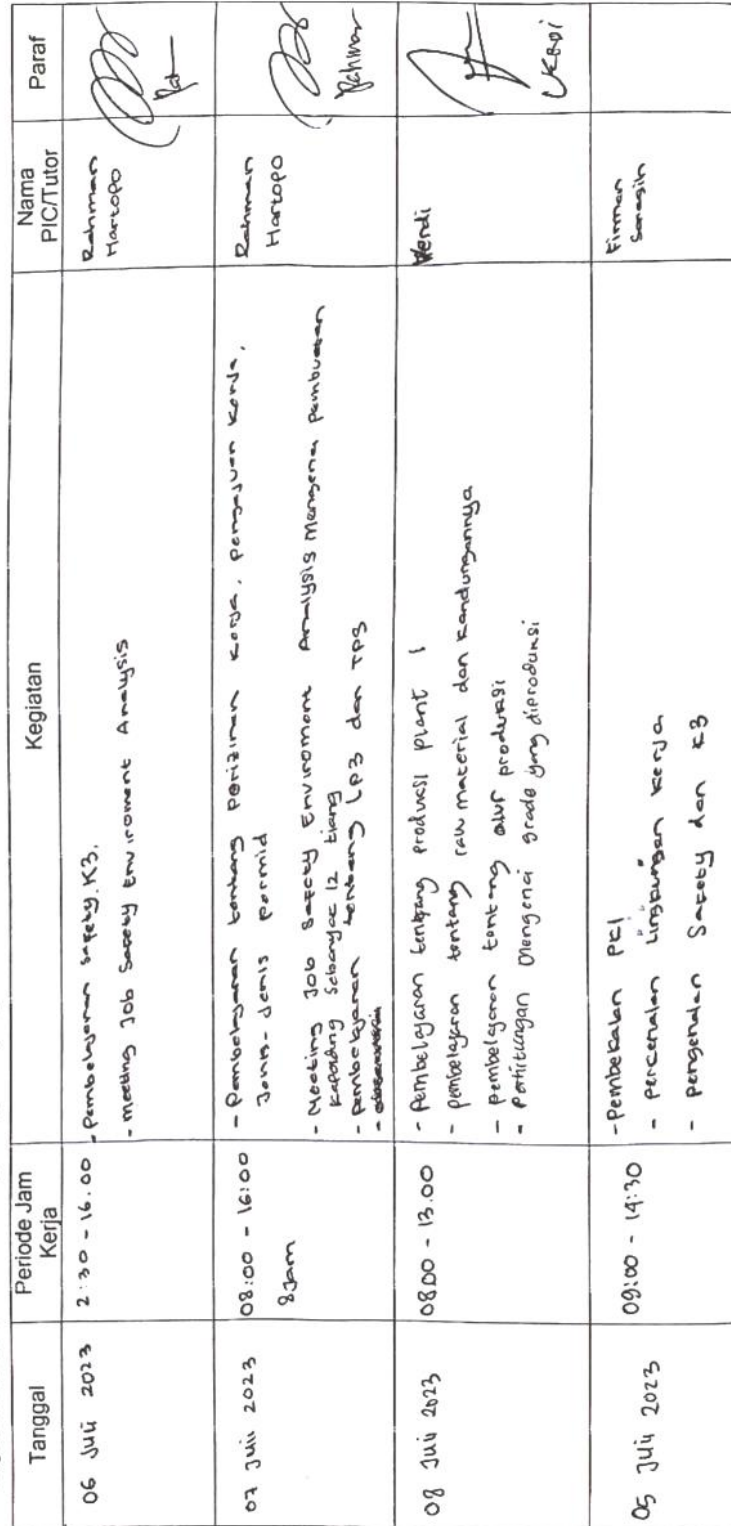 Tanggal
Periode Jam
Kerja
Kegiatan
Nama
PIC/Tutor
Paraf
06 Juli 2023
2:30 - 16.00
- Pembelajaran Safety, K3.
- Meeting Job Safety Enviroment Analysis
Rahman
Hartopo
07 Juli 2023
08:00 - 16:00
8 Jam
- Pembelajaran tentang Perizinan Kerja, pengajuan Kerja,
Jenis-Jenis Permid
- Meeting Job Safety Enviroment Analysis Mengenai Pembuatan
Sebanyak 12 tiang
- Pembelajaran tentang LP3 dan TPS
Rahman
Hartopo
Rahman
08 Juli 2023
0800 - 13.00
- Pembelajaran tentang produksi plant 1
- pembelajaran tentang raw material dan kandungannya
- pembelajaran tentang alur produksi
- Perhitungan mengenai grade yang diproduksi
Werdi
05 Juli 2023
09:00 - 14:30
- Pembekalan PKl
- percenalan Lingkungan kerja
- pengenalan Safety dan K3
Firman
Saragih